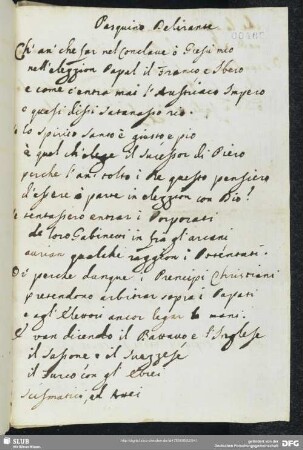 Pasquino Delirante
Ch' an' che far nel Conclave ò Giesù mio
nell' elezzion Papal il Franco e Ibero
e come c'entra mai l'Austriaco Impero
e quasi dissi Satanasso rio.
lo Spirito Santo è giusto e pio
è quel ch' elege il Sucessor di Piero
perche l' an' tolto i Re questo pensiero
d'essere à parte in elezzion con Dio?
tentassero entrar i Porporati
de loro Gabinetti in frà gl' arcani
aurian qualche raggion i Potentati.
perche dunque i Prencipi Christiani
pretendono arbitrar sopra i Papati
e agl' Elettori ancor legar le mani.
van dicendo il Bavaro e l'Inglese
il Sassone e il Suezzese
il Turco con gl' Ebrei
Scismatici, ed Atei
SLUB
Wir führen Wissen.
DFG
gefördert von der
Deutschen Forschungsgemeinschaft